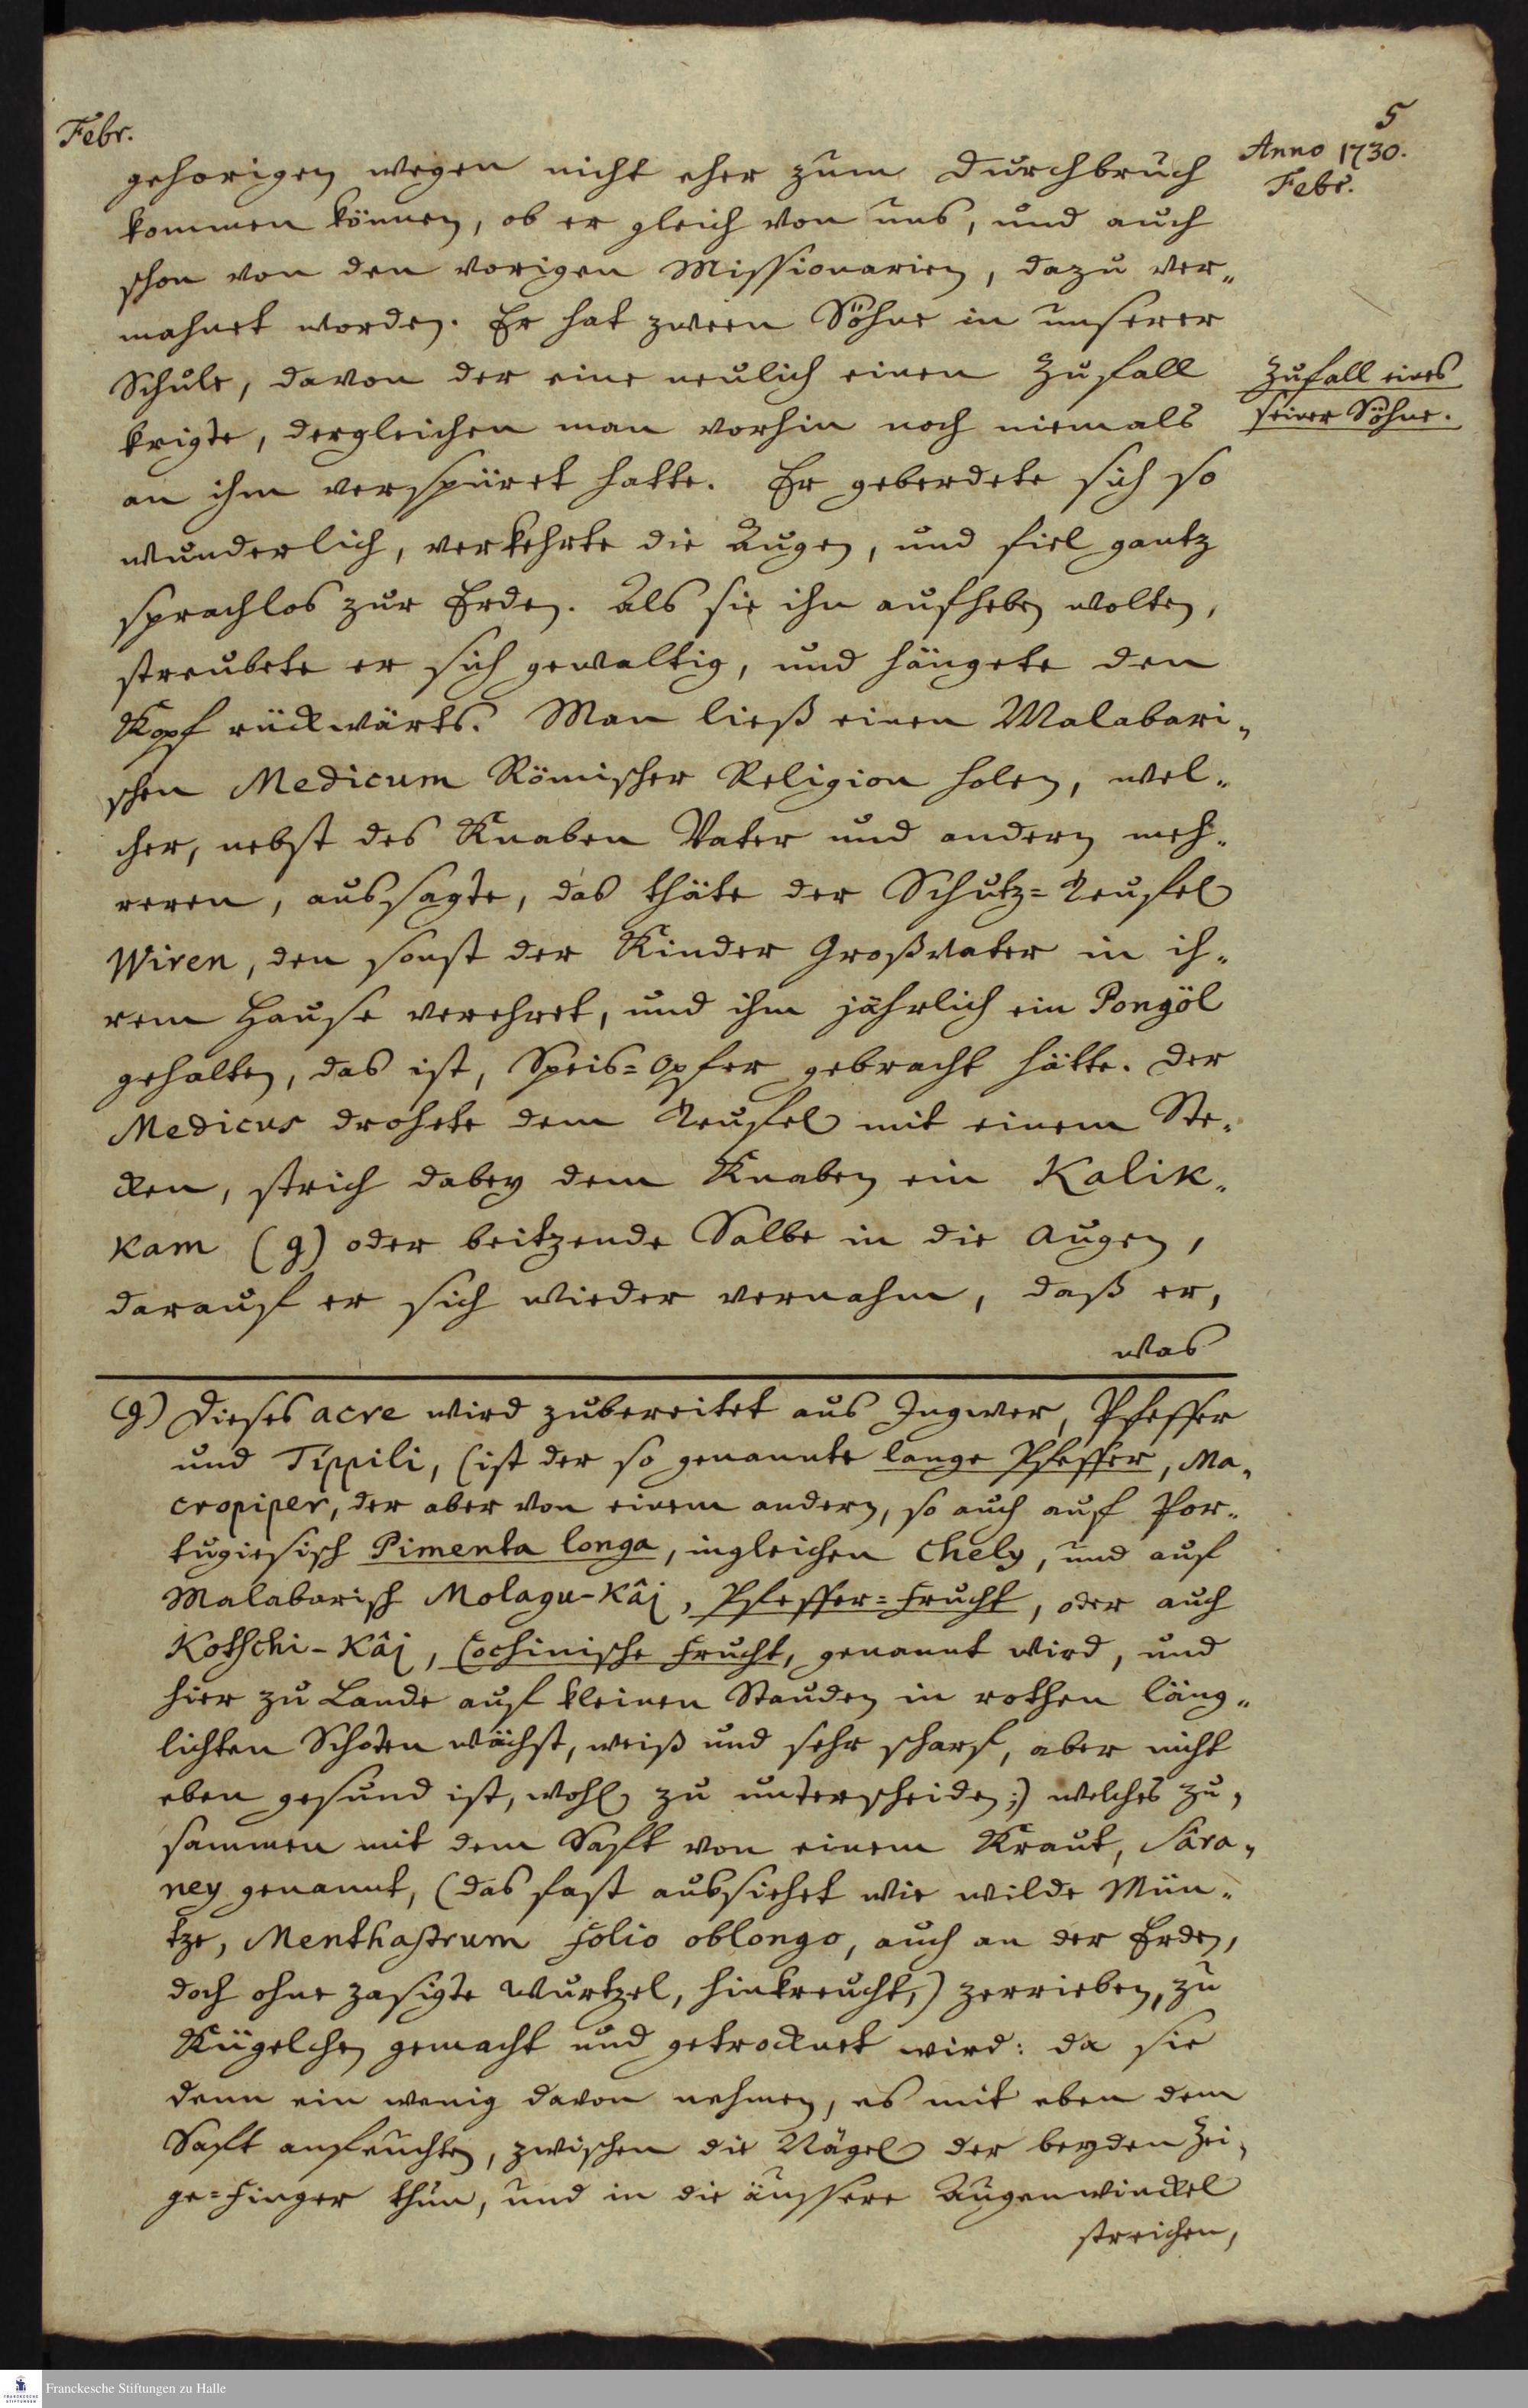 5
Febr.
Anno 1730.
Febr.
gehorigen wegen nicht eher zum Durchbruch
kommen können, ob er gleich von uns, und auch
schon von den vorigen Missionarien, dazu ver„
mahnet worden. Er hat zween Söhne in unserer
Schule, davon der eine neulich einen Zufall
Zufall eines
seiner Söhne.
krigte, dergleichen man vorhin noch niemals
an ihm verspüret hatte. Er geberdete sich so
wunderlich, verkehrte die Augen, und fiel gantz
sprachlos zur Erden. Als sie ihn aufheben wolten,
streubete er sich gewaltig, und hängete den
Kopf rückwärts. Man ließ einen Malabari„
schen Medicum Römischer Religion holen, wel„
cher, nebst des Knaben Vater und andern meh„
reren, aussagte, das thäte der Schutz=Teufel
Wiren, den sonst der Kinder Großvater in ih„
rem Hause verehret, und ihm jährlich ein Pongöl
gehalten, das ist, Speis=Opfer gebracht hätte. Der
Medicus drohete dem Teufel mit einem Ste„
cken, strich dabey dem Knaben ein Kalik„
kam (g) oder beitzende Salbe in die Augen,
darauf er sich wieder vernahm, daß er,
was
g) Dieses acre wird zubereitet aus Ingwer, Pfeffer
und Tippili, (ist der so genannte lange Pfeffer, Ma„
cropiper, der aber von einem andern, so auch auf Por„
tugiesisch Pimenta longa, ingleichen Chely, und auf
Malabarisch Molagu-Kâj, Pfeffer=Frucht, oder auch
Kotschi-Kâj, Cochinische Frucht, genannt wird, und
hier zu Lande auf kleinen Stauden in rothen läng„
lichten Schoten wächst, weiß und sehr scharf, aber nicht
eben gesund ist, wohl zu unterscheiden;) welches zu„
sammen mit dem Saft von einem Kraut, Sâra„
ney genannt, (das fast aussiehet wie wilde Mün„
tze, Menthastrum folio oblongo, auch an der Erden,
doch ohne zasigte Wurtzel, hinkreucht,) zerrieben, zu
Kügelchen gemacht und getrocknet wird: da sie
denn ein wenig davon nehmen, es mit eben dem
Saft anfeuchten, zwischen die Nägel der beyden Zei„
ge=Finger thun, und in die äussere Augenwinckel
streichen,
Franckesche Stiftungen zu Halle